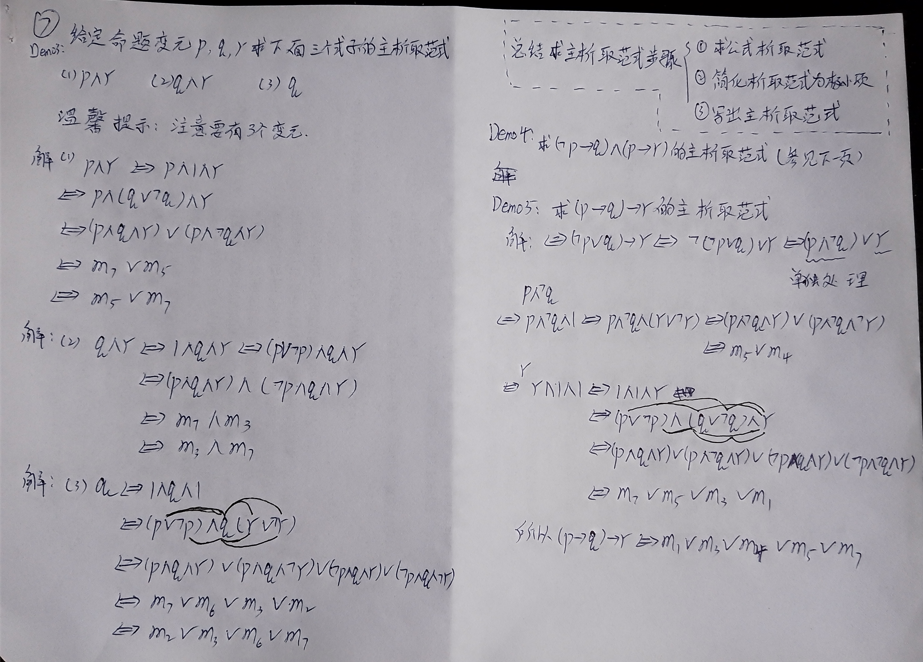 ⑦
Demo3: 给定命题变元 p, q, r 求下面三个式子的主析取范式
(1) p∧r (2) q∧r (3) q
温馨提示: 注意要有3个变元.
解 (1) p∧r ⇔ p∧1∧r
⇔ p∧(q∨¬q)∧r
⇔ (p∧q∧r)∨(p∧¬q∧r)
⇔ m₇∨m₅
⇔ m₅∨m₇
解: (2) q∧r ⇔ 1∧q∧r ⇔ (p∨¬p)∧q∧r
⇔ (p∧q∧r)∧(¬p∧q∧r)
⇔ m₇∧m₃
⇔ m₃∧m₇
解: (3) q ⇔ 1∧q∧1
⇔ (p∨¬p)∧q(r∨¬r)
⇔ (p∧q∧r)∨(p∧q∧¬r)∨(¬p∧q∧r)∨(¬p∧q∧¬r)
⇔ m₇∨m₆∨m₃∨m₂
⇔ m₂∨m₃∨m₆∨m₇
总结求主析取范式步骤
① 求公式析取范式
② 简化析取范式为极小项
③ 写出主析取范式
Demo4: 求(¬p→q)∧(p→r)的主析取范式 (参见下一页)
Demo5: 求(p→q)→r的主析取范式
解: ⇔(¬p∨q)→r ⇔ ¬(¬p∨q)∨r ⇔(p∧¬q)∨r
单独处理
p∧¬q
⇔ p∧¬q∧1 ⇔ p∧¬q∧(r∨¬r) ⇔(p∧¬q∧r)∨(p∧¬q∧¬r)
⇔ m₅∨m₄
r
⇔ r∧1∧1 ⇔ 1∧1∧r
⇔ (p∨¬p)∧(q∨¬q)∧r
⇔ (p∧q∧r)∨(p∧¬q∧r)∨(¬p∧q∧r)∨(¬p∧¬q∧r)
⇔ m₇∨m₅∨m₃∨m₁
所以 (p→q)→r ⇔ m₁∨m₃∨m₄∨m₅∨m₇